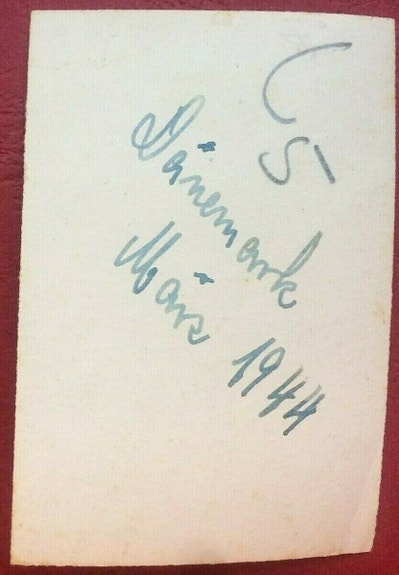 C5
Dänemark
März 1944